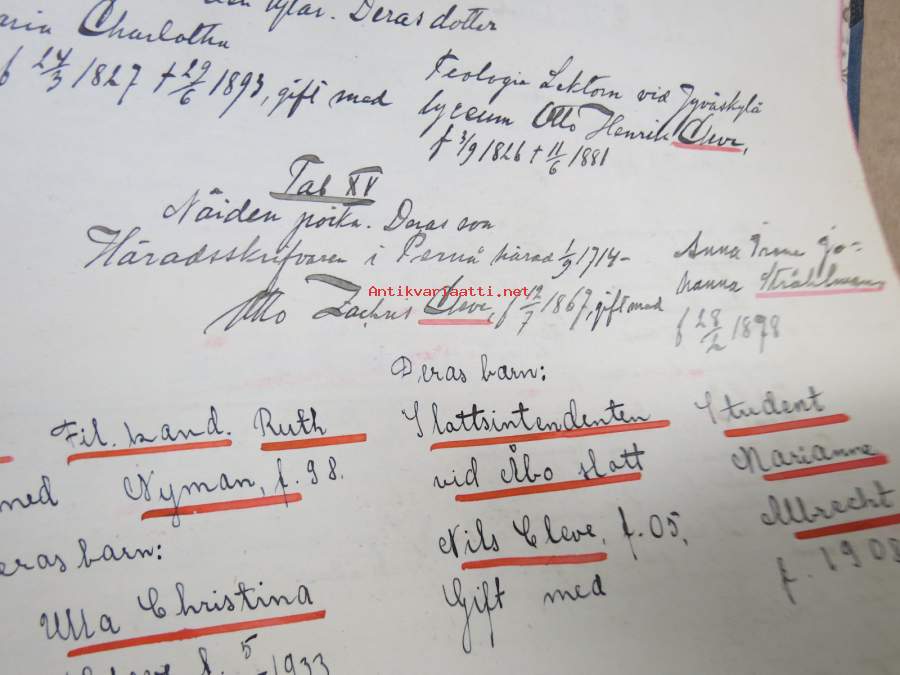 Deras dotter
Charlotta
f 24/3 1827 + 29/6 1893, gift med
Teologie Lektorn vid Jyväskylä
lyceum Otto Henrik Cleve,
f 3/9 1826 + 11/6 1881
Tab XV
Näiden poika. Deras son
Häradsskrifvaren i Pernå härad 1/9 1714-
Otto Zachus Cleve, f 12/7 1867, gift med
Anna Irene Jo-
hanna Stråhlman
f 28/2 1878
Antikvariaatti.net
Deras barn:
Fil. kand. Ruth
med Nyman, f. 98.
Deras barn:
Ulla Christina
f. 5 1933
Slottsintendenten
vid Åbo slott
Nils Cleve, f. 05,
Gift med
Student
Marianne
Albrecht
f. 1908